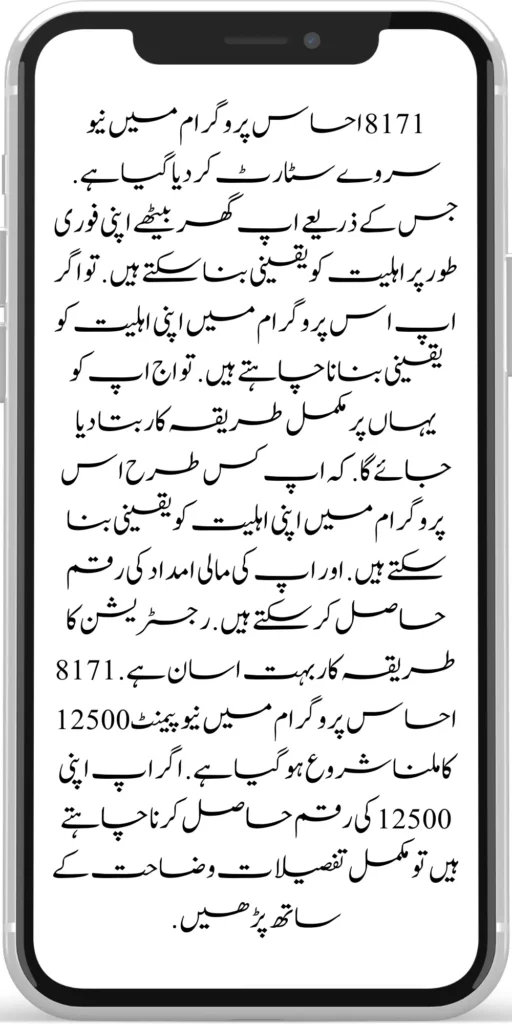 8171احساس پروگرام میں نیو
سروے سٹارٹ کر دیا گیا ہے.
جس کے ذریعے اپ گھر بیٹھے اپنی فوری
طور پر اہلیت کو یقینی بنا سکتے ہیں. تو اگر
اپ اس پروگرام میں اپنی اہلیت کو
یقینی بنانا چاہتے ہیں. تو اج اپ کو
یہاں پر مکمل طریقہ کار بتا دیا
جائے گا. کہ اپ کس طرح اس
پروگرام میں اپنی اہلیت کو یقینی بنا
سکتے ہیں. اور اپ کی مالی امداد کی رقم
حاصل کر سکتے ہیں. رجسٹریشن کا
طریقہ کار بہت اسان ہے. 8171
احساس پروگرام میں نیو پیمنٹ 12500
کا ملنا شروع ہو گیا ہے. اگر اپ اپنی
12500 کی رقم حاصل کرنا چاہتے
ہیں تو مکمل تفصیلات وضاحت کے
ساتھ پڑھیں.